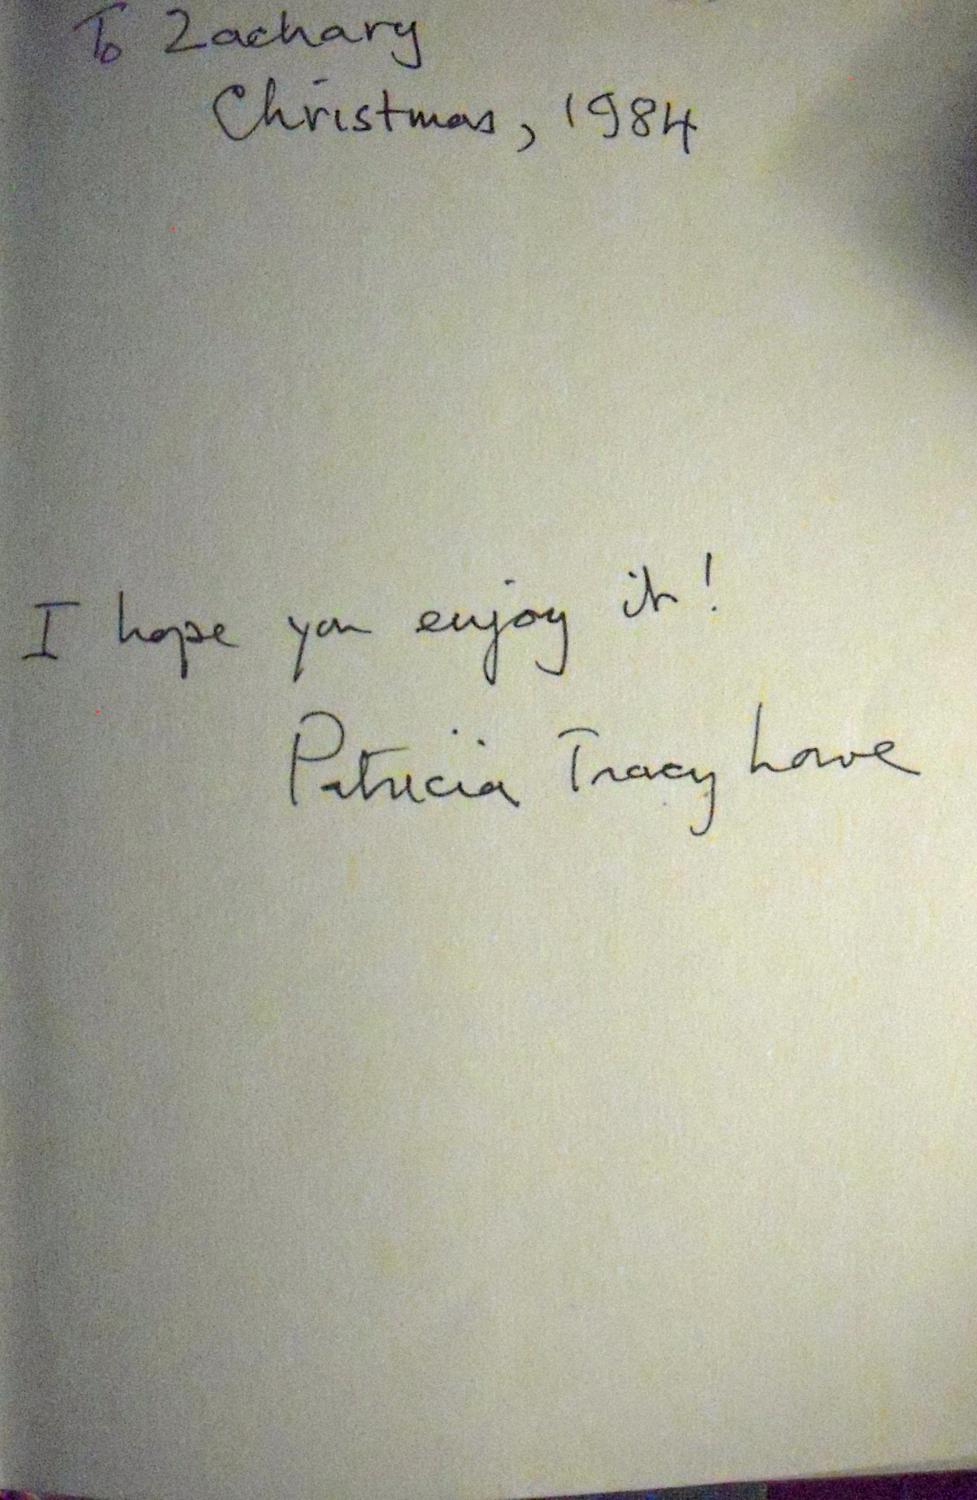 To Zachary
Christmas, 1984
I hope you enjoy it!
Patricia Tracy Lowe